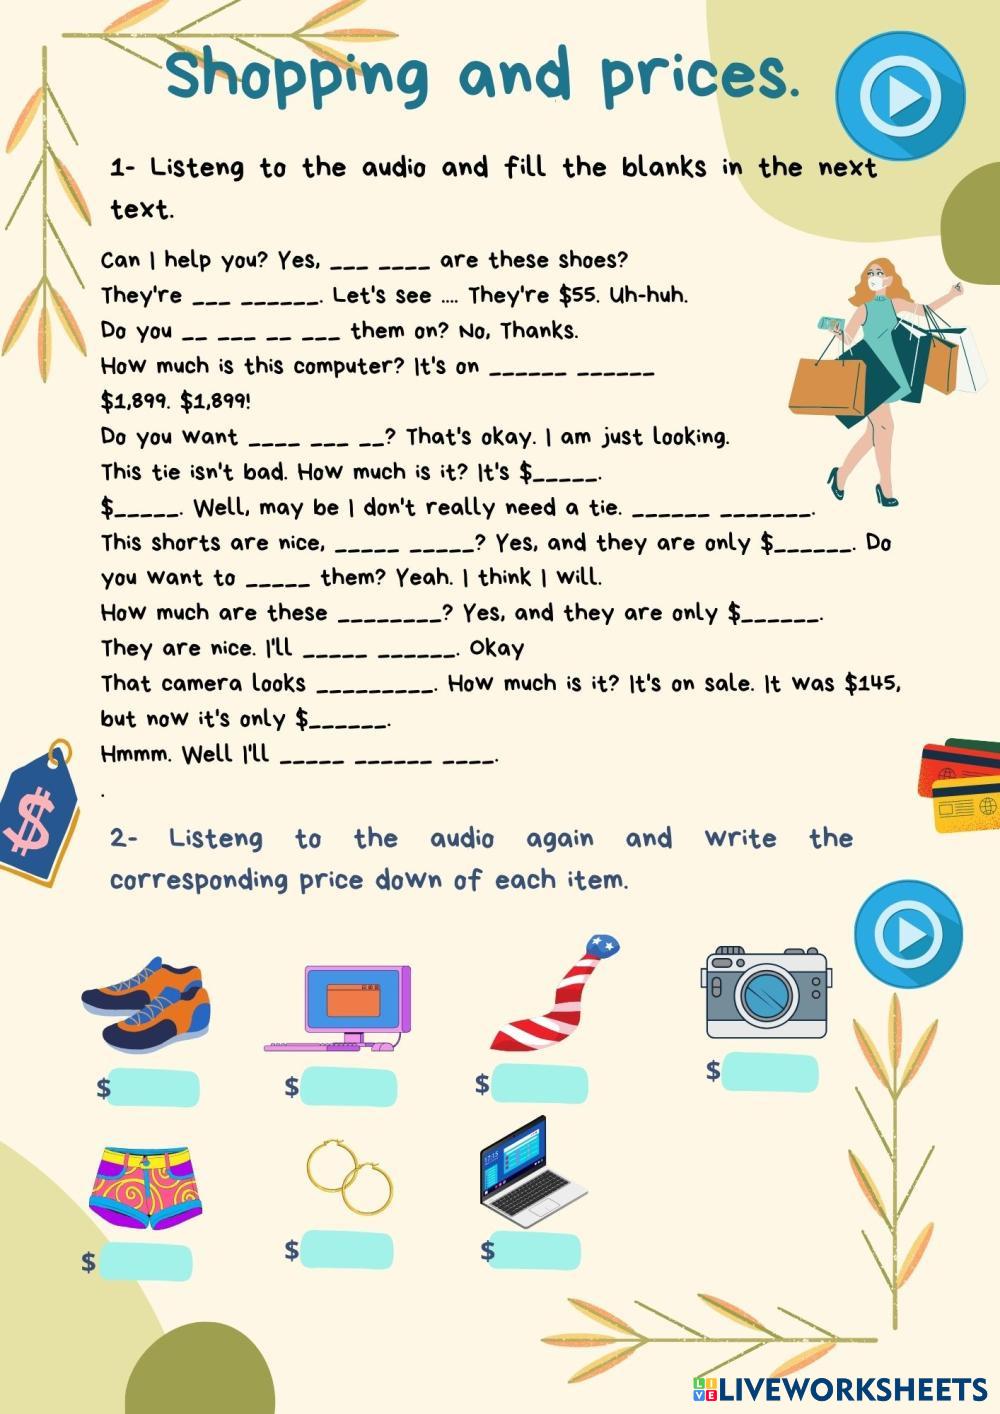 Shopping and prices.
1- Listeng to the audio and fill the blanks in the next
text.
Can I help you? Yes, ___ ____ are these shoes?
They're ___ ______. Let's see .... They're $55. Uh-huh.
Do you __ ___ __ ___ them on? No, Thanks.
How much is this computer? It's on ______ ______
$1,899. $1,899!
Do you want ____ ___ __? That's okay. I am just looking.
This tie isn't bad. How much is it? It's $_____.
$_____. Well, may be I don't really need a tie. ______ _______.
This shorts are nice, _____ _____? Yes, and they are only $______. Do
you want to _____ them? Yeah. I think I will.
How much are these ________? Yes, and they are only $______.
They are nice. I'll _____ ______. Okay
That camera looks _________. How much is it? It's on sale. It was $145,
but now it's only $______.
Hmmm. Well I'll _____ ______ ____.
.
$
2- Listeng to the audio again and write the
corresponding price down of each item.
$ $ $ $
17:15
$ $ $
LIVEWORKSHEETS